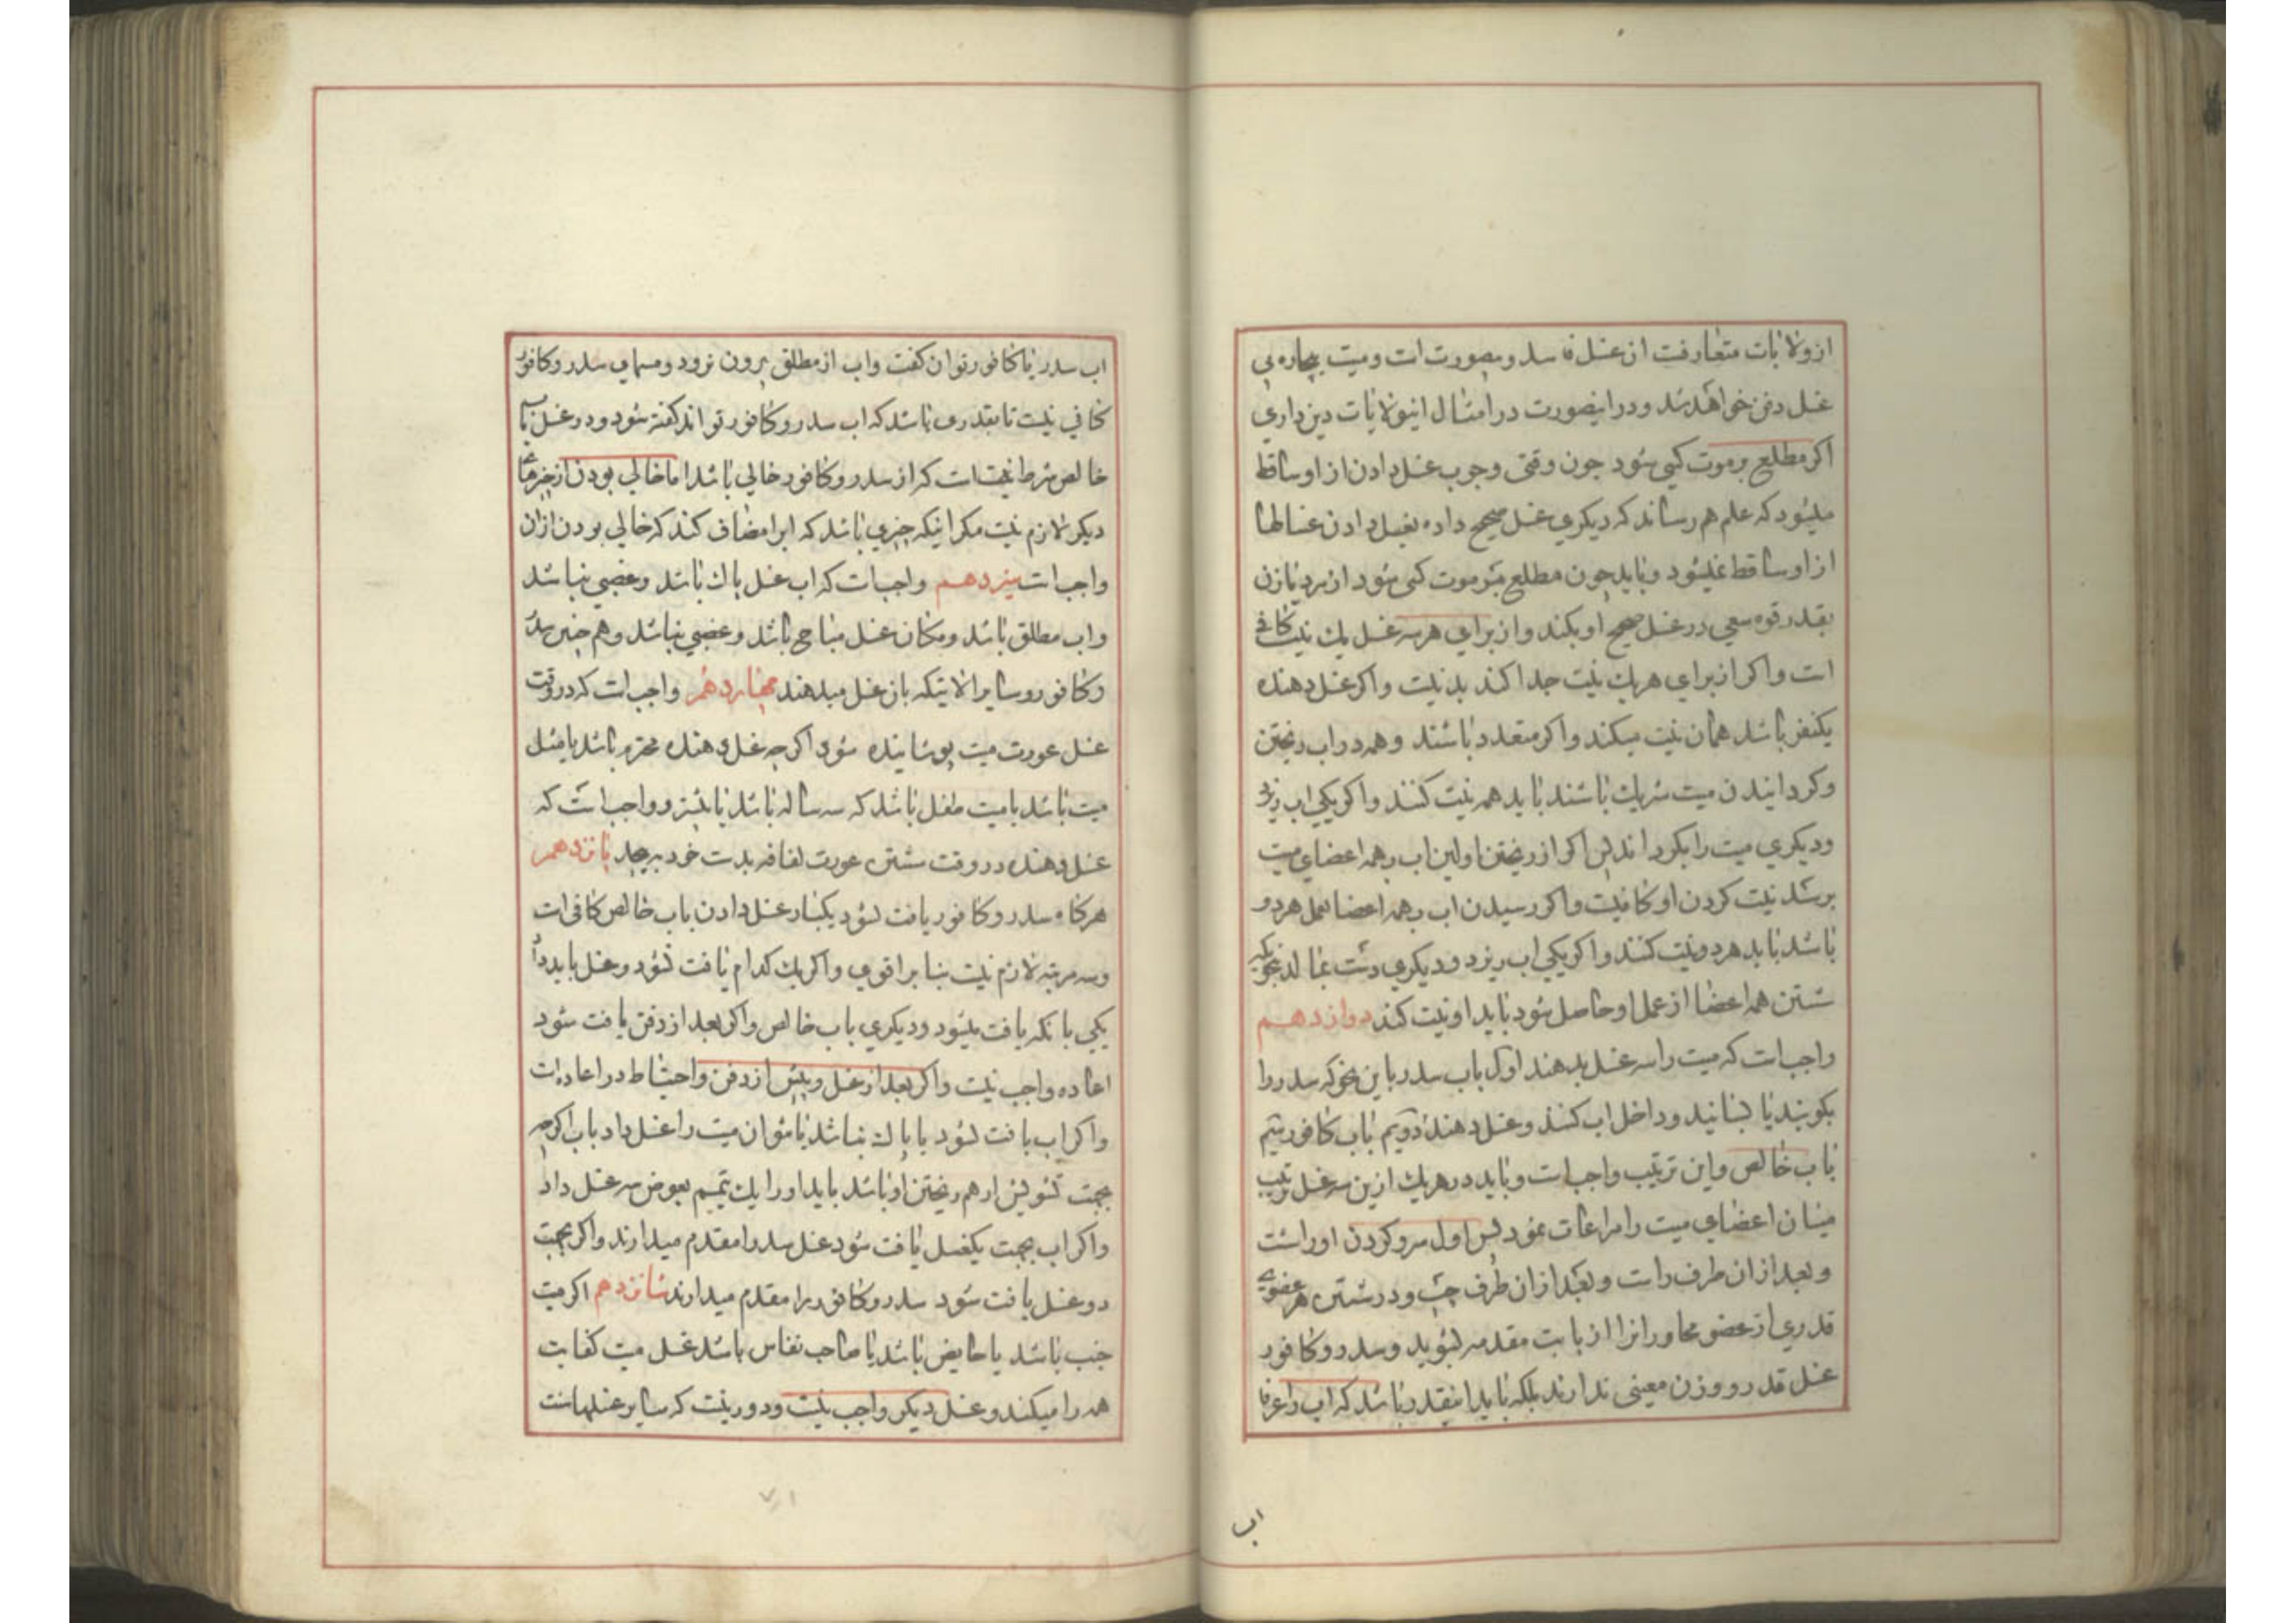 ازولایات متعارفت ان غسل فاسد و بصورت است و میت بیچاره بی
غسل دفن خواهد شد و در اینصورت در امثال اینولایات دین داری
اکر مطلع بر موت کسی شود چون وقتی وجوب غسل دادن از او ساقط
میشود که علم هم رساند که دیکری غسل صحیح داده بغسل دادن غسالها
از او ساقط نمیشود و باید چون مطلع بر موت کسی شود از مرد یا زن
بقدر قوه سعی در غسل صحیح او بکند و از برای هر سه غسل یک نیت کافی
است و اکر از برای هر یک نیت جدا کند بد نیست و اکر غسل دهنده
یکنفر باشد همان نیت میکند و اکر متعدد باشند و همه در اب ریختن
و کردانیدن میت شریک باشند باید همه نیت کنند و اکر یکی اب ریزد
و دیکری میت را بکرداند پس اکر از ریختن اولین اب بهمه اعضای میت
برسد نیت کردن او کافیست و اکر رسیدن اب بهمه اعضا بعمل هر دو
باشد باید هر دو نیت کنند و اکر یکی اب ریزد و دیکری دست بمالد بنحویکه
شستن همه اعضا از عمل او حاصل شود باید او نیت کند دوازدهم
واجب است که میت را سه غسل بدهند اول باب سدر باین نحو که سدر را
بکوبند یا بسایند و داخل اب کنند و غسل دهند دویم باب کافور سیم
باب خالص و این ترتیب واجب است و باید در هر یک ازین سه غسل ترتیب
میان اعضای میت را مراعات نمود پس اول سر و کردن او را شست
و بعد از ان طرف راست و بعد از ان طرف چپ و در شستن هر عضوی
قدری از عضو مجاور انرا از بابت مقدمه بشوید و سدر و کافور
غسل قدر و وزن معینی ندارند بلکه باید اینقدر باشد که اب را عرفا
اب
اب سدر یا کافور توان کفت و اب از مطلق برون نرود و مسمای سدر و کافور
کافی نیست تا بقدری باشد که اب سدر و کافور تواند کفته شود و در غسل باب
خالص شرط انست که از سدر و کافور خالی باشد اما خالی بودن از چیزهای
دیکر لازم نیست مکر اینکه چیزی باشد که ابرا مضاف کند که خالی بودن ازان
واجب است سیزدهم واجب است که اب غسل پاک باشد و غصبی نباشد
و اب مطلق باشد و مکان غسل مباح باشد و غصبی نباشد و هم چنین سدر
و کافور و سایر الاتیکه بان غسل میدهند چهاردهم واجب است که در وقت
غسل عورت میت پوشانیده شود اکر چه غسل دهنده محرم باشد یا مثل
میت باشد یا میت طفل باشد که سه ساله باشد یا بیشتر و واجب است که
غسل دهنده در وقت شستن عورت لفافه بدست خود بپیچد پانزدهم
هرکاه سدر و کافور یافت نشود یکبار غسل دادن باب خالص کافی است
و سه مرتبه لازم نیست بنا بر اقوی و اکر یک کدام یافت نشود دو غسل باید داد
یکی بانکه یافت میشود و دیکری باب خالص و اکر بعد از دفن یافت شود
اعاده واجب نیست و اکر بعد از غسل و پیش از دفن و احتیاط در اعاده است
و اکر اب یافت نشود یا پاک نباشد یا نتوان میت را غسل داد باب اکر چه
بجهت تشویش از هم ریختن او باشد باید او را یک تیمم بعوض سه غسل داد
و اکر اب بجهت یکغسل یافت شود غسل سدر را مقدم میدارند و اکر بجهت
دو غسل یافت شود سدر و کافور را مقدم میدارند شانزدهم اکر میت
جنب باشد یا حایض باشد یا صاحب نفاس باشد غسل میت کفایت
همه را میکند و غسل دیکر واجب نیست و دور نیست که سایر غسلها سنت
۷۱